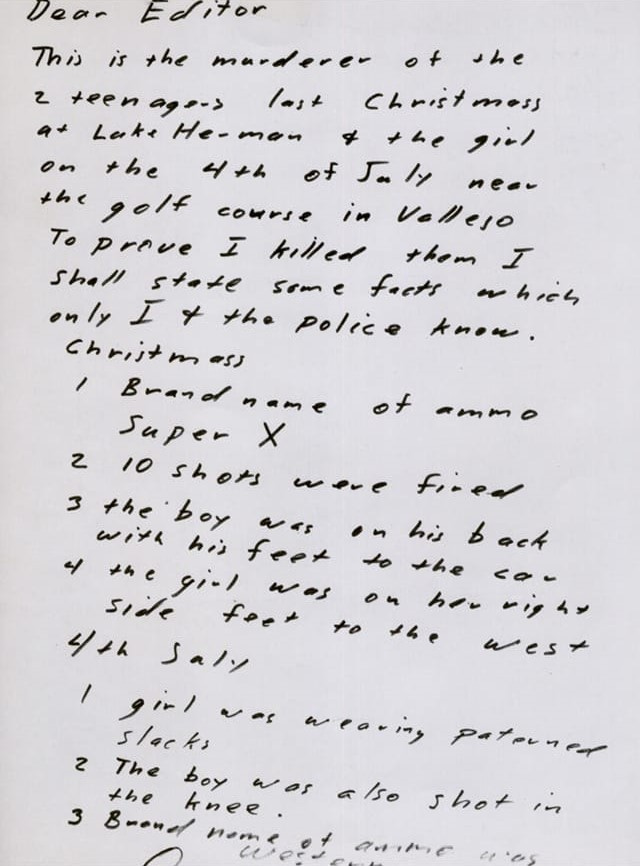 Dear Editor
This is the murderer of the
2 teenagers last Christmass
at Lake Herman & the girl
on the 4th of July near
the golf course in Vallejo
To prove I killed them I
shall state some facts which
only I & the police know.
Christmass
1 Brand name of ammo
Super X
2 10 shots were fired
3 the boy was on his back
with his feet to the car
4 the girl was on her right
side feet to the west
4th July
1 girl was wearing paterned
slacks
2 The boy was also shot in
the knee.
3 Brand name of ammo was
Western